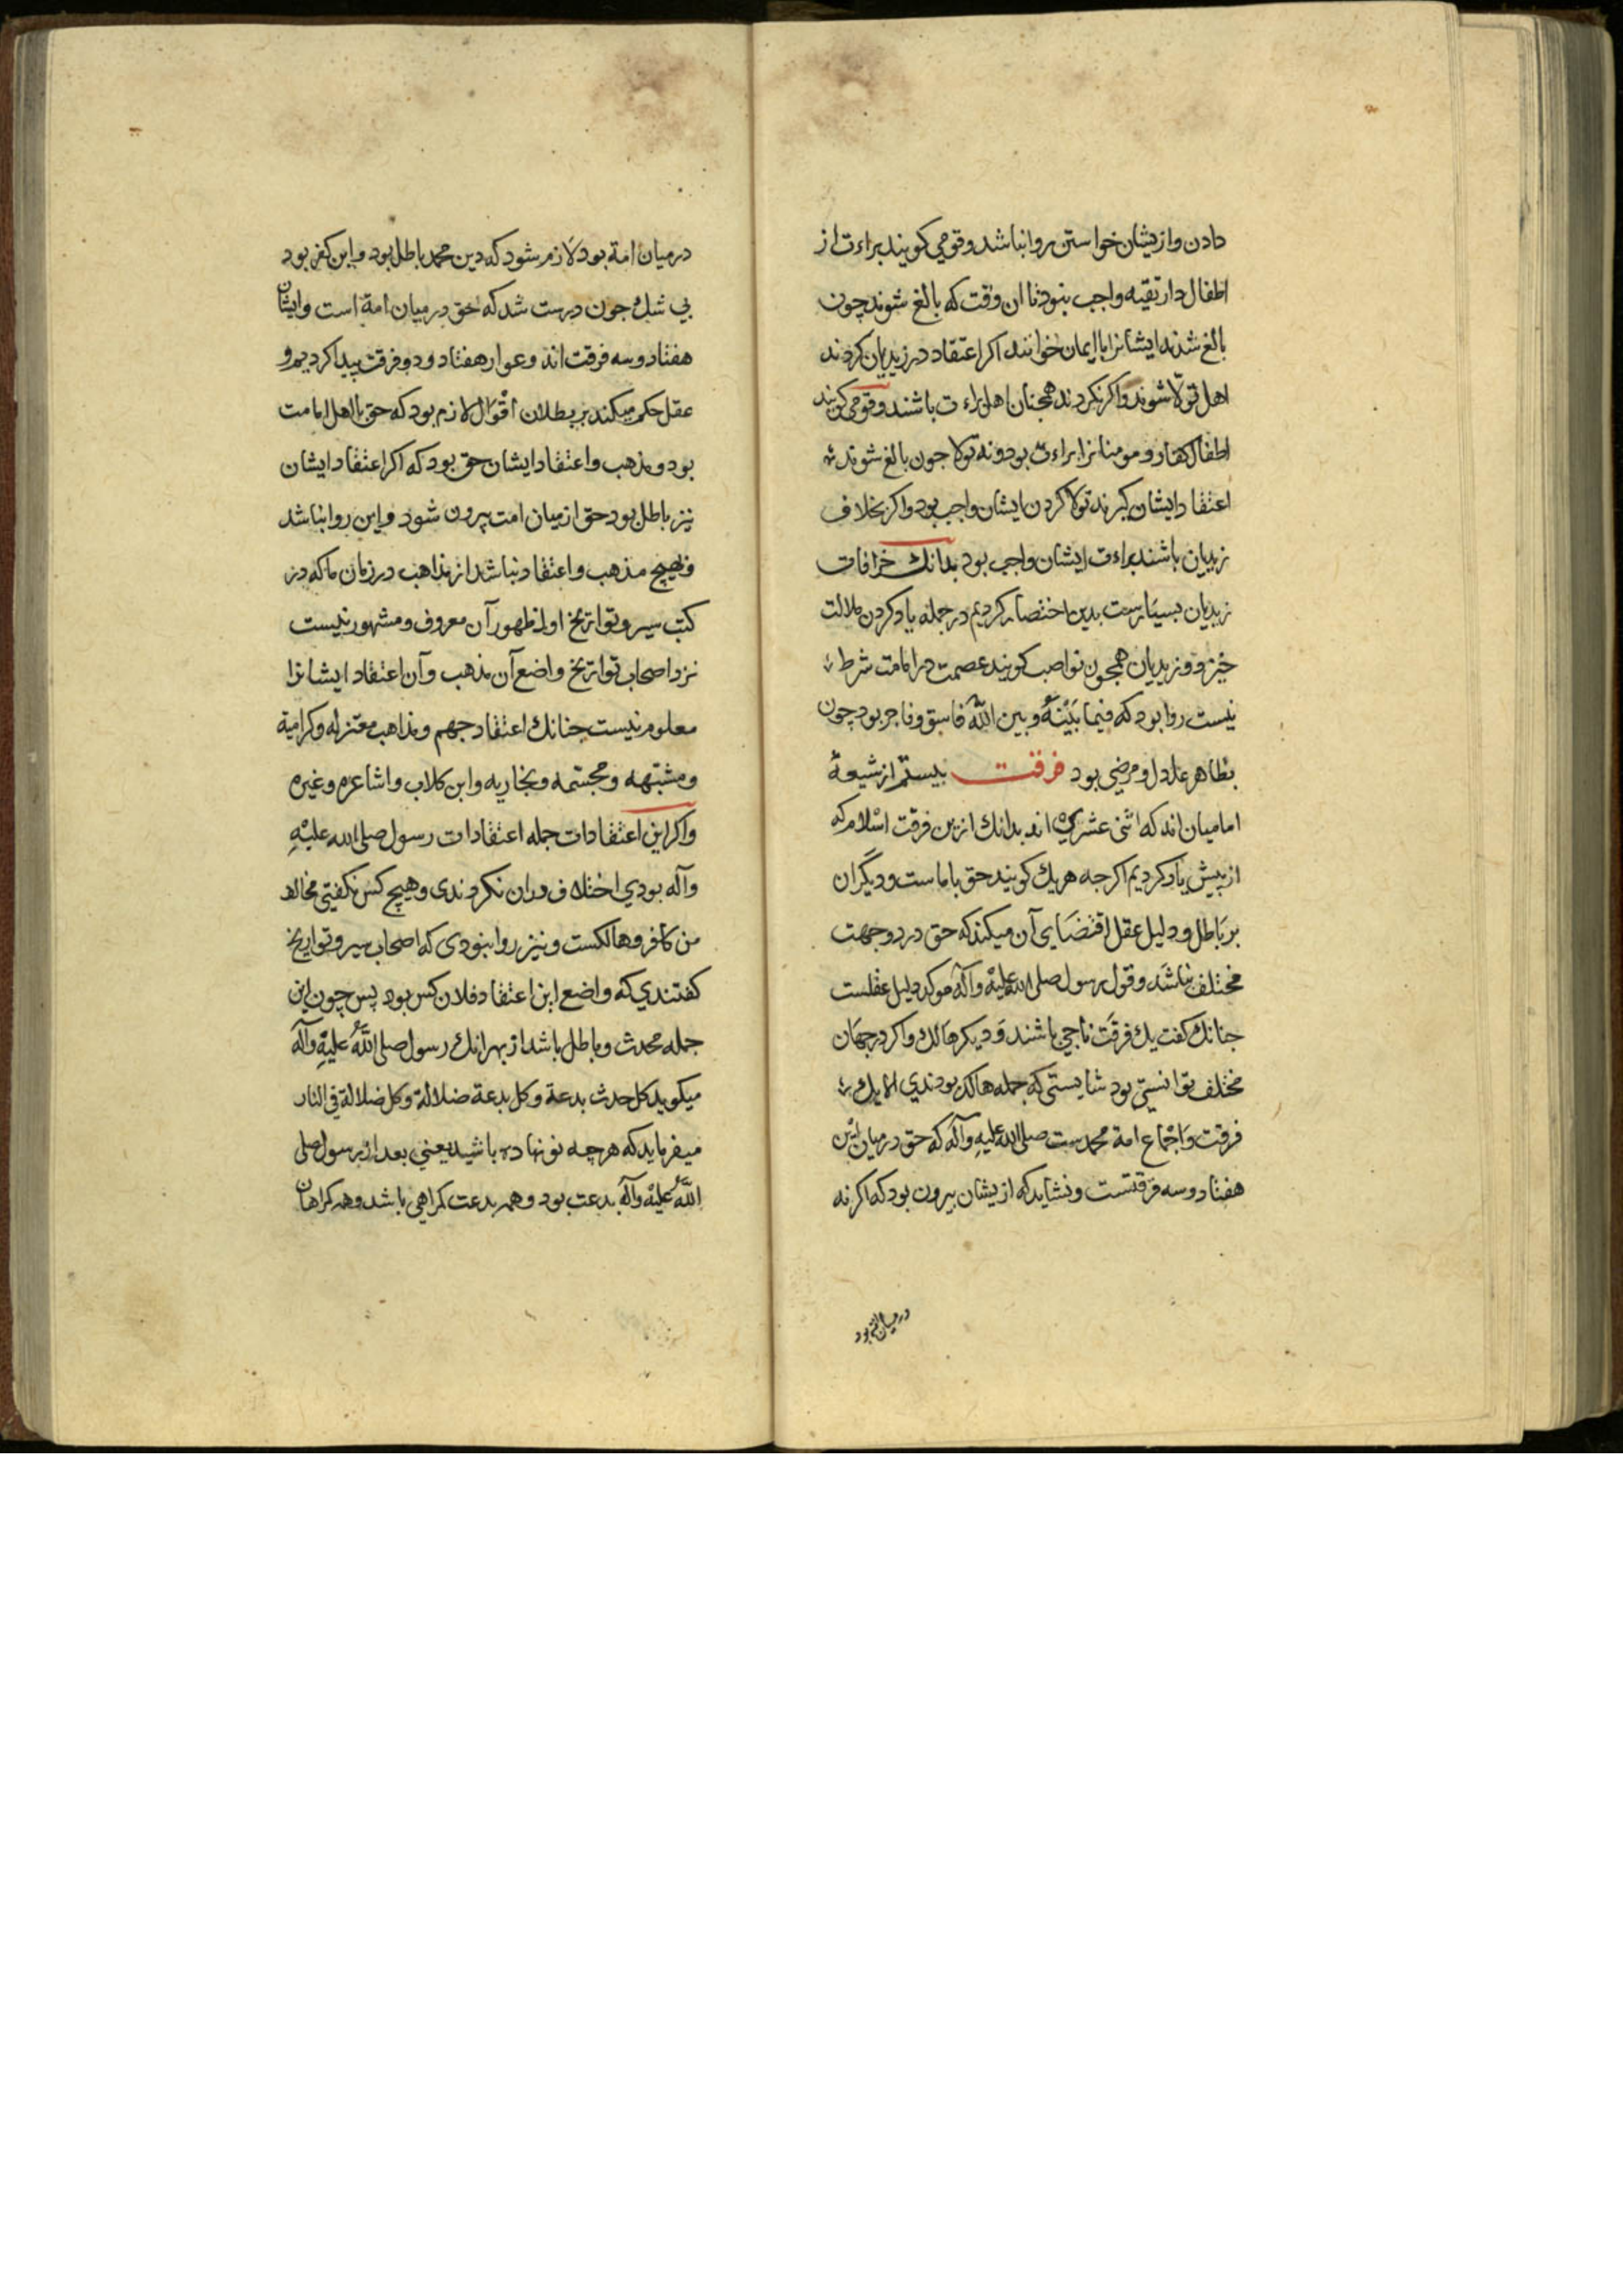 دادن وازیشان خواستن روا نباشد وقومی کویند براءت از
اطفال دار تقیه واجب نبود تا ان وقت که بالغ شوند چون
بالغ شدند ایشانرا با ایمان خوانند اکر اعتقاد در زیدیان کردند
اهل تولّا شوند واکر نکردند همچنان اهل براءت باشند وقومی کویند
اطفال کفار ومومنانرا براءت بود ونه تولا جون بالغ شوند
اعتقاد ایشان کیرند تولا کردن ایشان واجب بود واکر بخلاف
زیدیان باشند براءت ایشان واجب بود بدانک خرافات
زیدیان بسیارست بدین اختصار کردیم در جمله یاد کردن ملالت
خیزد وزیدیان همجون نواصب کویند عصمت در امامت شرط
نیست روا بود که فیما بَیْنَهُ وبین اللّه فاسق وفاجر بود چون
بظاهر عادل ومرضی بود فرقت بیستم از شیعهٔ
امامیان اند که اثنی عشری اند بدانک ازین فرقت اسْلام که
از پیش یاد کردیم اکرجه هر یك کویند حق با ماست ودیگران
بر باطل ودلیل عقل اقتضای آن میکند که حق در دو جهت
مختلف نباشد وقول رسول صلی اللّه علیه وآله موکد دلیل عقلست
جنانك کفت یك فرقت ناجی باشند ودیکر هالك واکر در جهان
مختلف توانستی بود شایستی که جمله هالك بودندی الا یك
فرقت واجماع امة محمدست صلی الله علیه وآله که حق در میان این
هفتاد وسه فرقتست ونشاید که ازیشان بیرون بود که اکر نه
در میان امة بود
در میان امة بود لازم شود که دین محمد باطل بود واین کفر بود
بی شك جون درست شد که حق در میان امة است وایشان
هفتاد وسه فرقت اند وعوار هفتاد ودو فرقت پیدا کردیم و
عقل حکم میکند بر بطلان اقوال لازم بود که حق با اهل امامت
بود ومذهب واعتقاد ایشان حق بود که اکر اعتقاد ایشان
نیز باطل بود حق از میان امت بیرون شود واین روا نباشد
وهیچ مذهب واعتقاد نباشد از مذاهب در زمان ما که در
کتب سیر وتواریخ اول ظهور آن معروف ومشهور نیست
نزد اصحاب تواریخ واضع آن مذهب وآن اعتقاد ایشانرا
معلوم نیست جنانك اعتقاد جهم ومذاهب معتزله وکرامیة
ومشبهه ومجسمه ونجاریه وابن کلاب واشاعره وغیره
واکر این اعتقادات جمله اعتقادات رسول صلی الله علیْهِ
وآله بودی اختلاف دران نکردندی وهیچ کس نکفتی مخالف
من کافر وهالکست ونیز روا نبودی که اصحاب سیر وتواریخ
کفتندی که واضع این اعتقاد فلان کس بود پس چون این
جمله محدث وباطل باشد از بهر انك رسول صلی اللّهُ علیْهِ وآله
میکوید کل حدث بدعة وکل بدعة ضلالة وکل ضلالة فی النار
میفرماید که هر چه نو نهاده باشید یعنی بعد از رسول صلی
اللّهُ علیْه وآله بدعت بود وهمه بدعت کمراهی باشد وهمه کمراهان